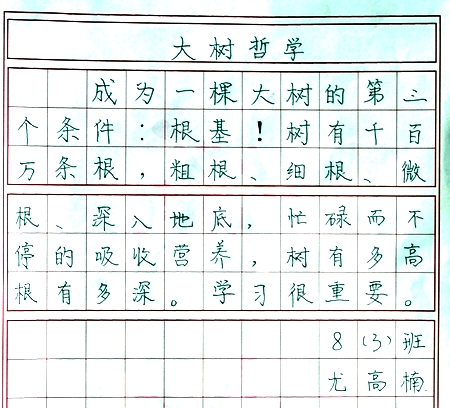 大树哲学
成为一棵大树的第三
个条件：根基！树有千百
万条根，粗根、细根、微
根、深入地底，忙碌而不
停的吸收营养，树有多高
根有多深。学习很重要。
8（3）班
尤高楠